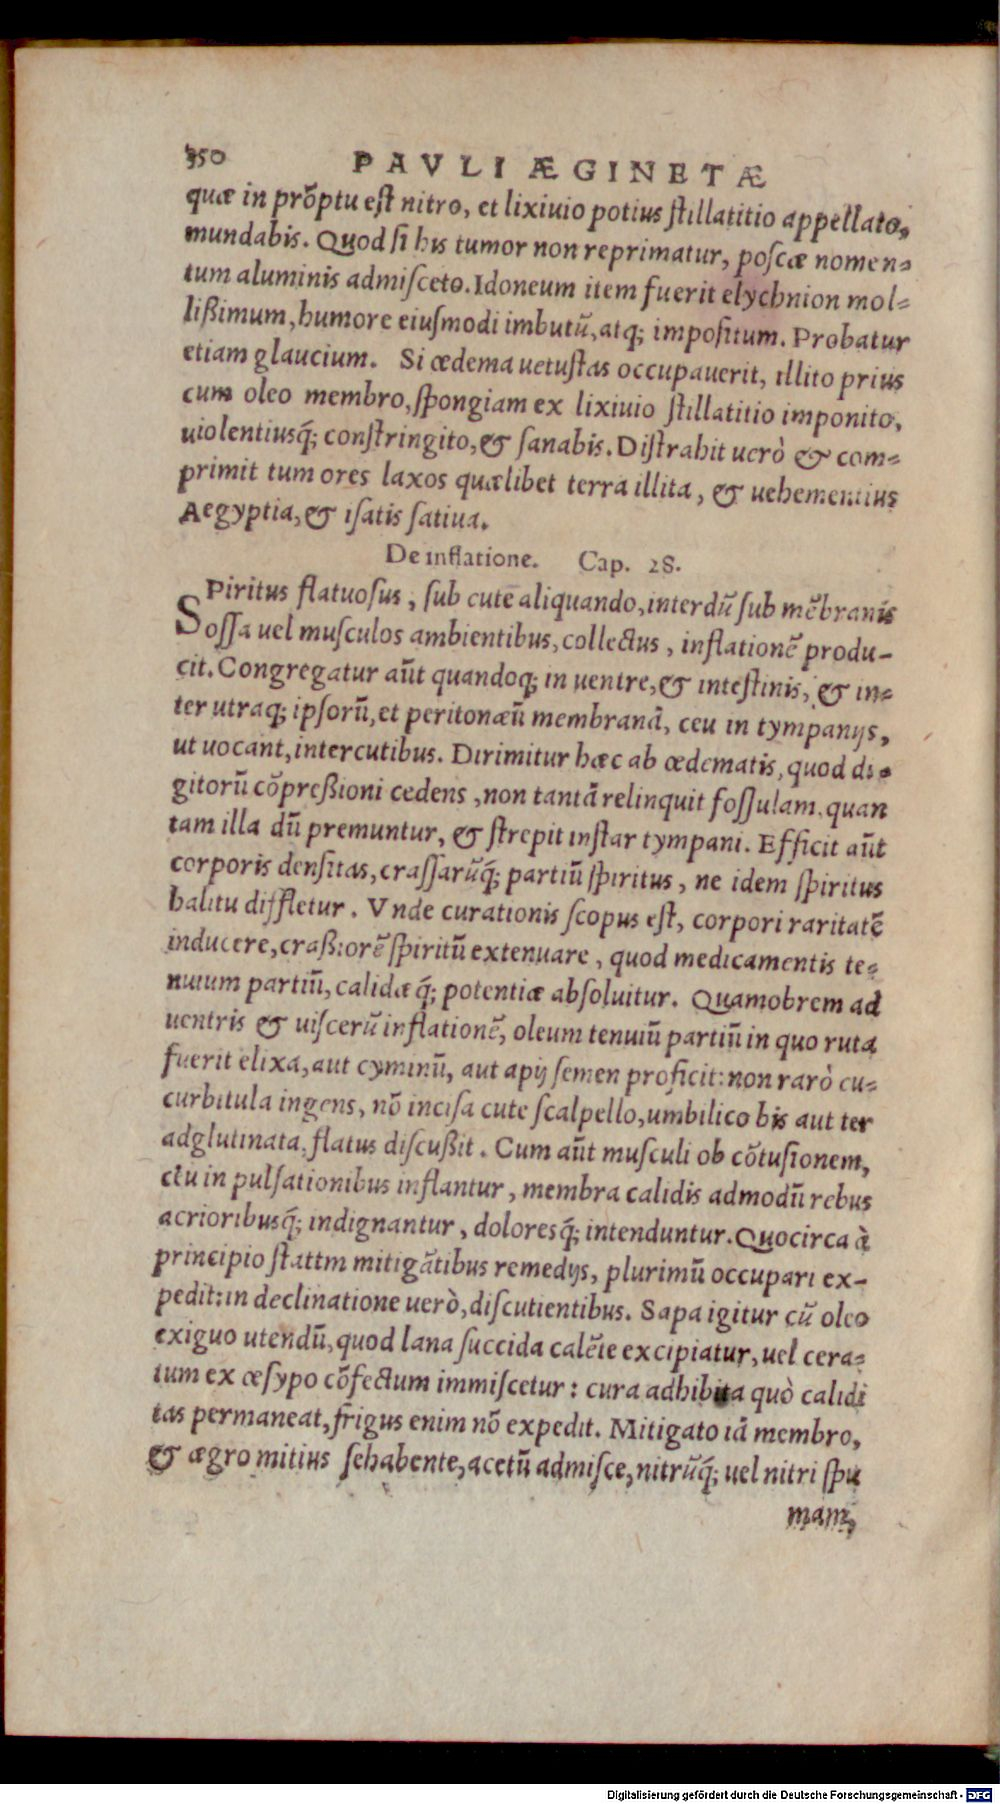 350 PAVLI ÆGINETÆ
quæ in prõptu eſt nitro, et lixiuio potius ſtillatitio appellato,
mundabis. Quod ſi his tumor non reprimatur, poſcæ nomen-
tum aluminis admiſceto. Idoneum item fuerit elychnion mol-
lißimum, humore eiuſmodi imbutũ, atq; impoſitum. Probatur
etiam glaucium. Si œdema uetuſtas occupauerit, illito prius
cum oleo membro, ſpongiam ex lixiuio ſtillatitio imponito,
uiolentiusq́; conſtringito, & ſanabis. Diſtrahit uerò & com-
primit tum ores laxos quælibet terra illita, & uehementius
Aegyptia, & iſatis ſatiua.
De inflatione. Cap. 28.
SPiritus flatuoſus, ſub cute aliquando, interdũ ſub mẽbranis
oſſa uel muſculos ambientibus, collectus, inflationẽ produ-
cit. Congregatur aũt quandoq; in uentre, & inteſtinis, & in-
ter utraq; ipſorũ, et peritonæũ membranã, ceu in tympanijs,
ut uocant, intercutibus. Dirimitur hæc ab œdematis, quod di-
gitorũ cõpreßioni cedens, non tantã relinquit foſſulam, quan
tam illa dũ premuntur, & ſtrepit inſtar tympani. Efficit aũt
corporis denſitas, craſſarũq́; partiũ ſpiritus, ne idem ſpiritus
halitu diffletur. Vnde curationis ſcopus eſt, corpori raritatẽ
inducere, craßiorẽ ſpiritũ extenuare, quod medicamentis te-
nuium partiũ, calidæ q́; potentiæ abſoluitur. Quamobrem ad
uentris & uiſcerũ inflationẽ, oleum tenuiũ partiũ in quo ruta
fuerit elixa, aut cyminũ, aut apij ſemen proficit: non rarò cu-
curbitula ingens, nõ inciſa cute ſcalpello, umbilico bis aut ter
adglutinata, flatus diſcußit. Cum aũt muſculi ob cõtuſionem,
ctu in pulſationibus inflantur, membra calidis admodũ rebus
acrioribusq́; indignantur, doloresq́; intenduntur. Quocirca à
principio ſtattm mitigãtibus remedijs, plurimũ occupari ex-
pedit: in declinatione uerò, diſcutientibus. Sapa igitur cũ oleo
exiguo utendũ, quod lana ſuccida calẽte excipiatur, uel cera-
tum ex œſypo cõfectum immiſcetur: cura adhibita quò calidi
tas permaneat, frigus enim nõ expedit. Mitigato iã membro,
& ægro mitius ſehabente, acetũ admiſce, nitrũq́; uel nitri ſpu
mam,
Digitalisierung gefördert durch die Deutsche Forschungsgemeinschaft - DFG